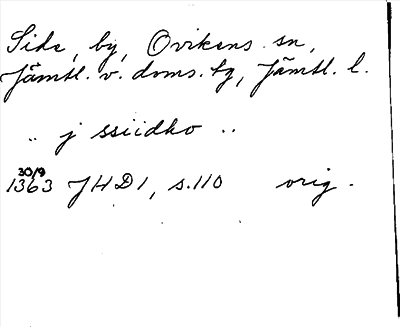 Side, by, Ovikens sn,
Jämtl. v. doms. hg, Jämtl. l.
.. j ssiidho ..
30/9
1363 JHD1, s.110 orig.